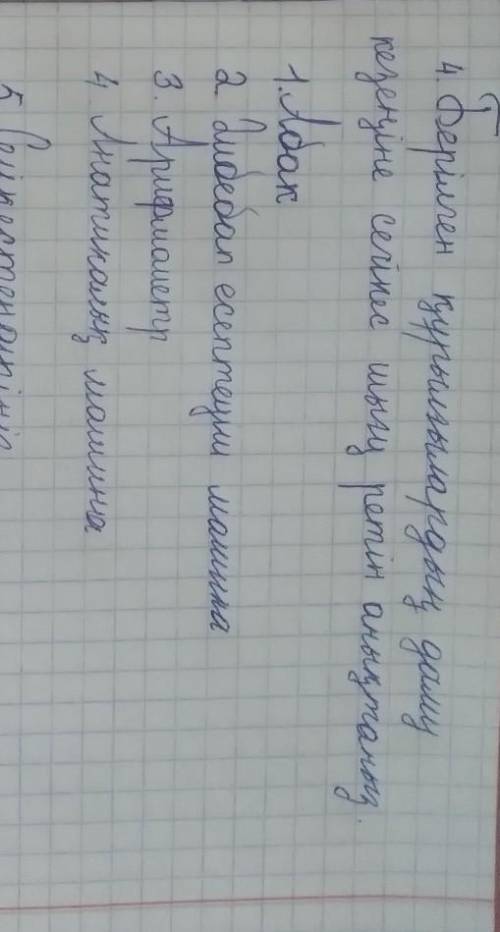 4. Берілген құрылғылардың даму
кезеңіне сәйкес шығу ретін анықтаңыз.
1. Абак
2. есептеуіш машина
3. Арифмометр
4. Аналитикалық машина
5. Сәйкестендіріңіз